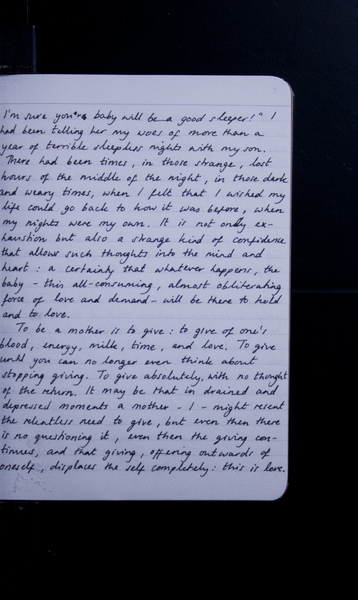 I'm sure your baby will be a good sleeper!" I
had been telling her my woes of more than a
year of terrible sleepless nights with my son.
There had been times, in those strange, lost
hours of the middle of the night, in those dark
and weary times, when I felt that I wished my
life could go back to how it was before, when
my nights were my own. It is not only ex-
haustion but also a strange kind of confidence
that allows such thoughts into the mind and
heart: a certainty that whatever happens, the
baby - this all-consuming, almost obliterating
force of love and demand - will be there to hold
and to love.
To be a mother is to give: to give of one's
blood, energy, milk, time, and love. To give
until you can no longer even think about
stopping giving. To give absolutely, with no thought
of the return. It may be that in drained and
depressed moments a mother - I - might resent
the relentless need to give, but even then there
is no questioning it, even then the giving con-
tinues, and that giving, offering outwards of
oneself, displaces the self completely: this is love.